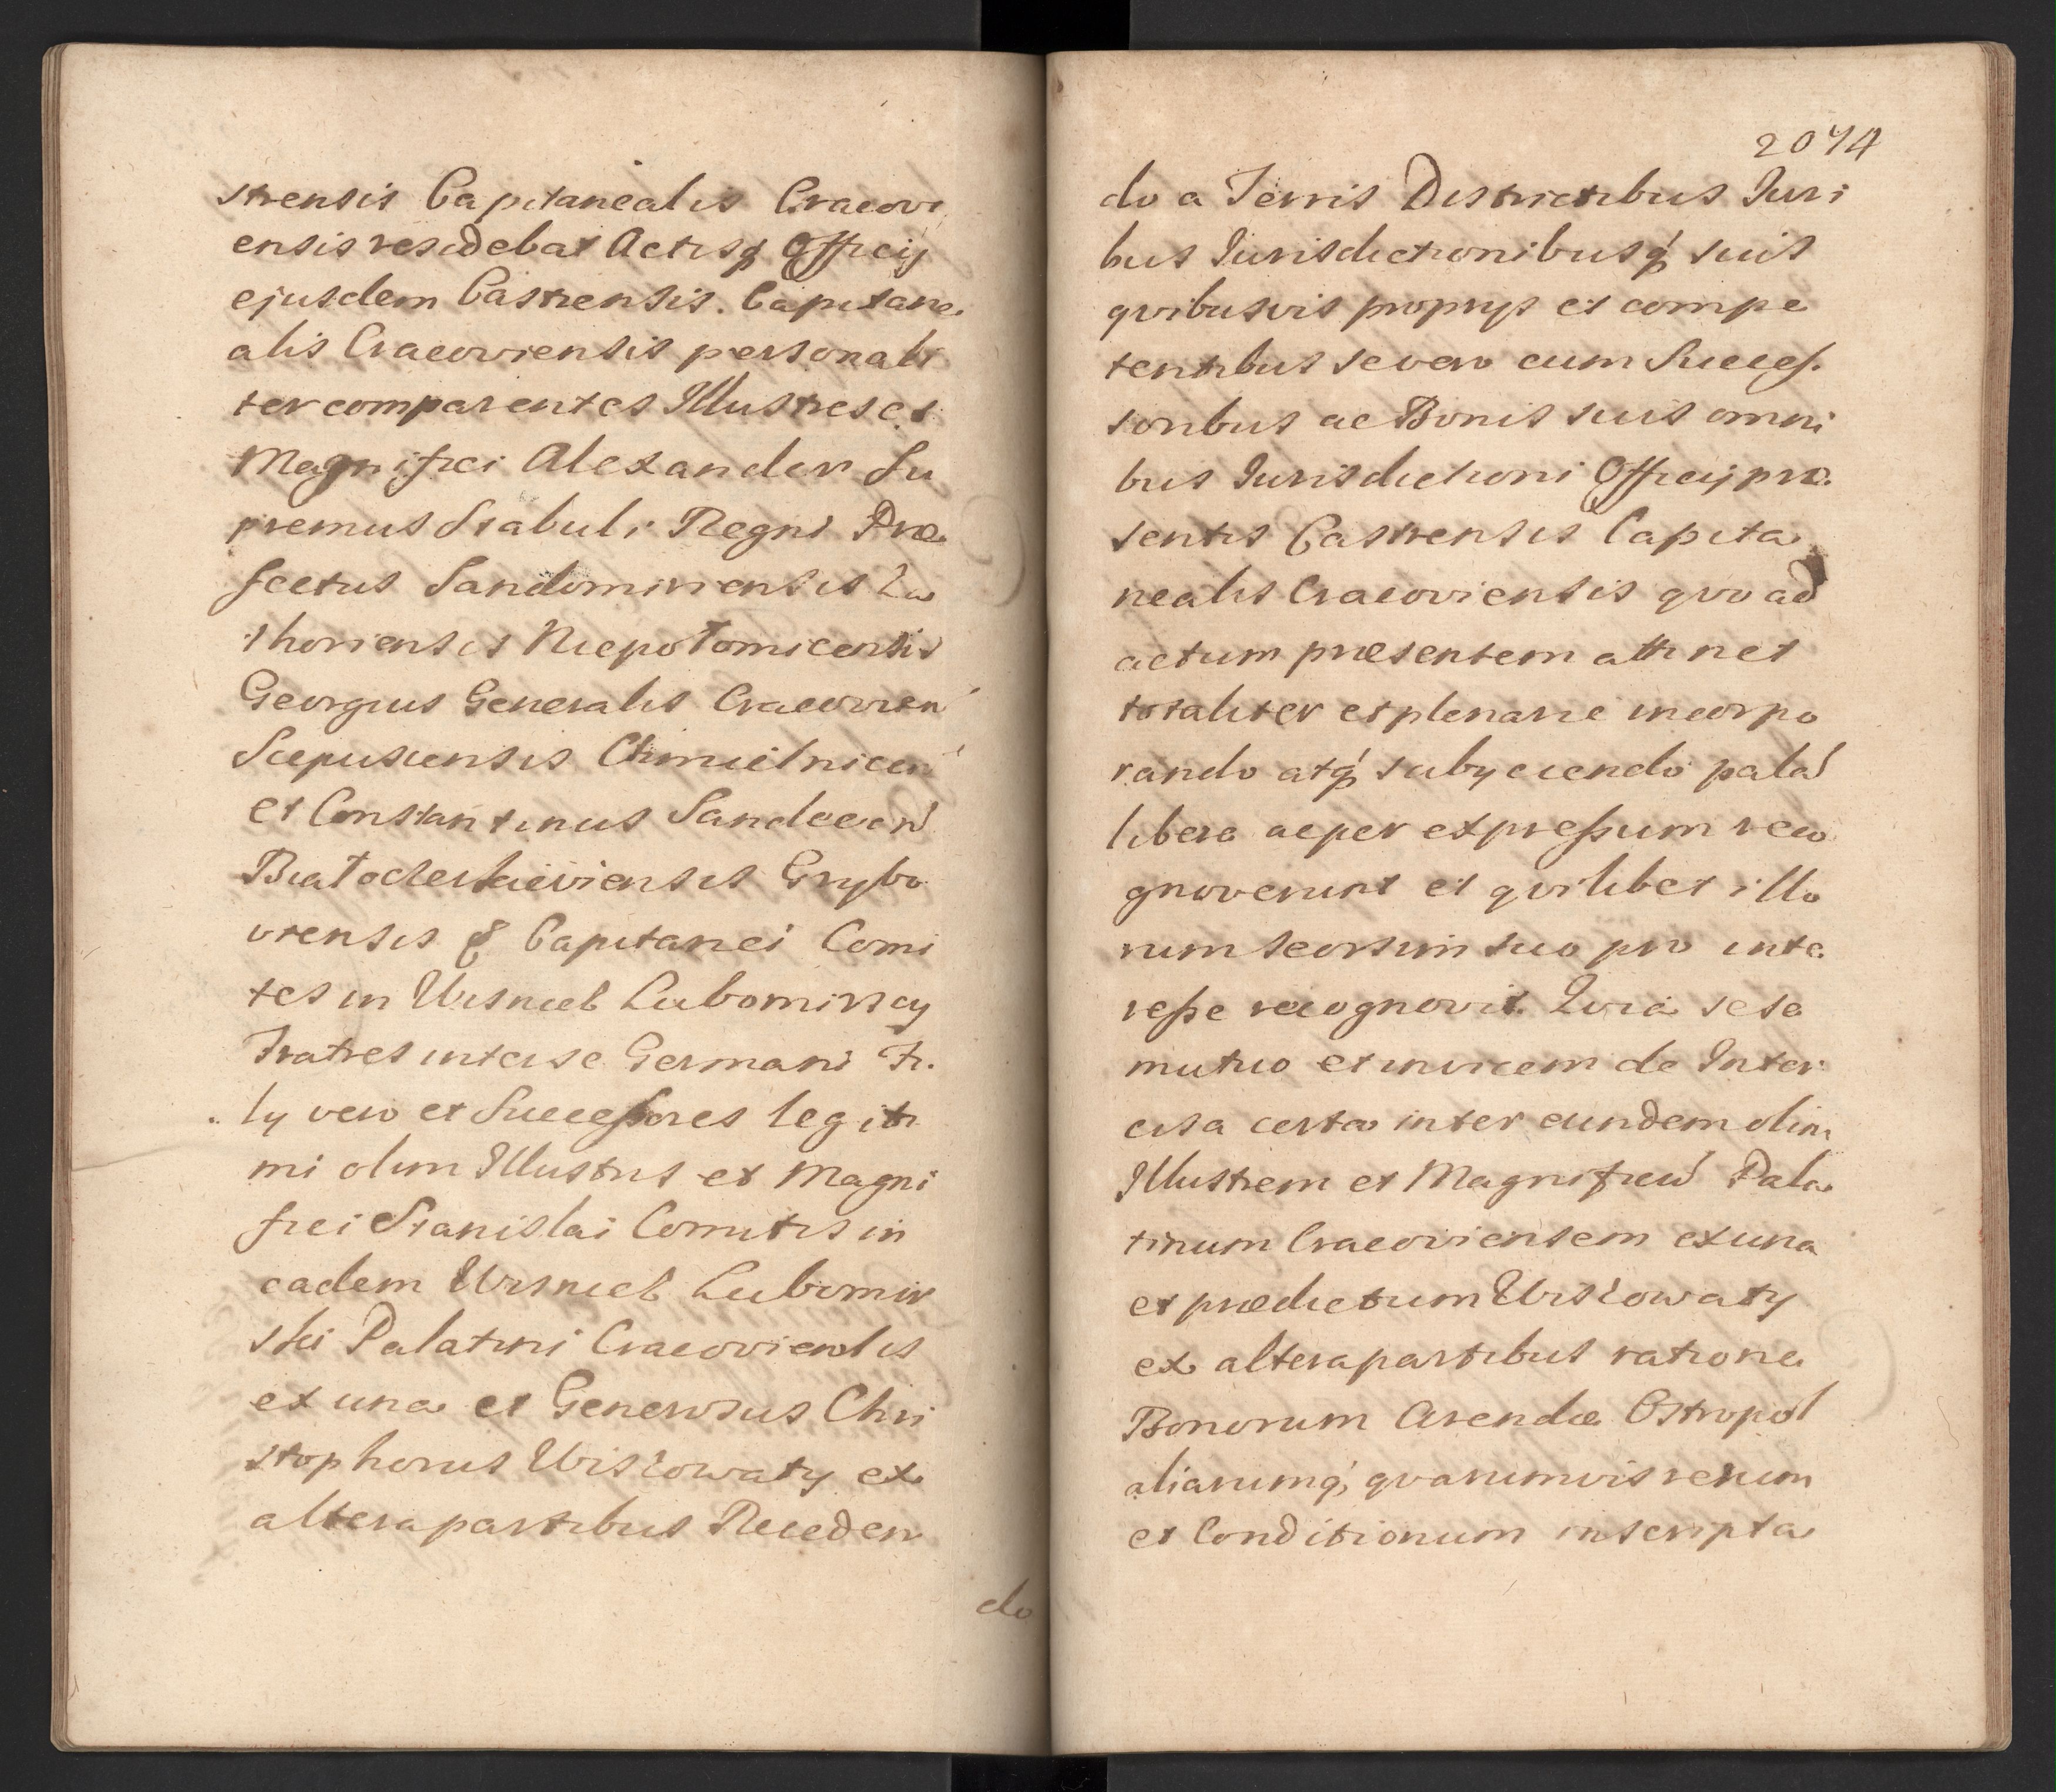 strensis Capitanealis Cracovi
ensis residebat Actisq Officij
ejusdem Castrensis. Capitane
alis Cracoviensis personali
ter comparentes Illustres et
Magnifici Alexander Su
premus Stabuli Regni Præ
fectus Sandomiriensis Za
thoriensis Niepołomicensis
Georgius Generalis Cracovien
Scepusiensis Chmielnicen
et Constantinus Sandecen
Białocierkieviensis Grybo
viensis & Capitanei Comi
tes in Wisnicz Lubomirscy
Fratres inter se Germani Fi
lij vero et Successores legiti
mi olim Illustris et Magni
fici Stanislai Comitis in
eadem Wisnicz Lubomir
ski Palatini Cracoviensis
ex una et Generosus Chri
stophorus Wiszowaty ex
altera partibus Receden
do
2074
do a Terris Districtibus Juri
bus Jurisdictionibusq suis
qvibusvis proprijs et compe
tentibus se vero cum Succes
soribus ac Bonis suis omni
bus Jurisdictioni Officij præ
sentis Castrensis Capita
nealis Cracoviensis qvo ad
actum præsentem attinet
totaliter et plenarie incorpo
rando atq subijciendo pala
libere ac per expressum reco
gnoverunt et qvilibet illo
rum seorsim suo pro inte
resse recognovit. Qvia sese
mutuo et invicem de Inter
cisa certa inter eundem olim
Illustrem et Magnificu Pala
tinum Cracoviensem ex una
et prædictum Wiszowaty
ex altera partibus ratione
Bonorum Arendæ Ostropol
aliarumq qvarumvis rerum
et Conditionum inscripta